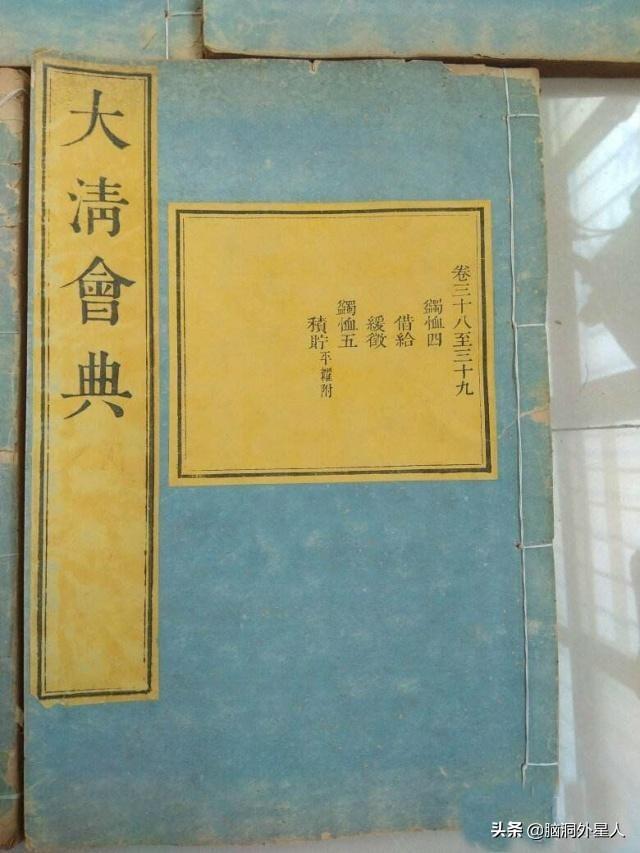 大淸會典
卷三十八至三十九
蠲恤四
借給
緩徵
蠲恤五
積貯平糶附
头条 @脑洞外星人